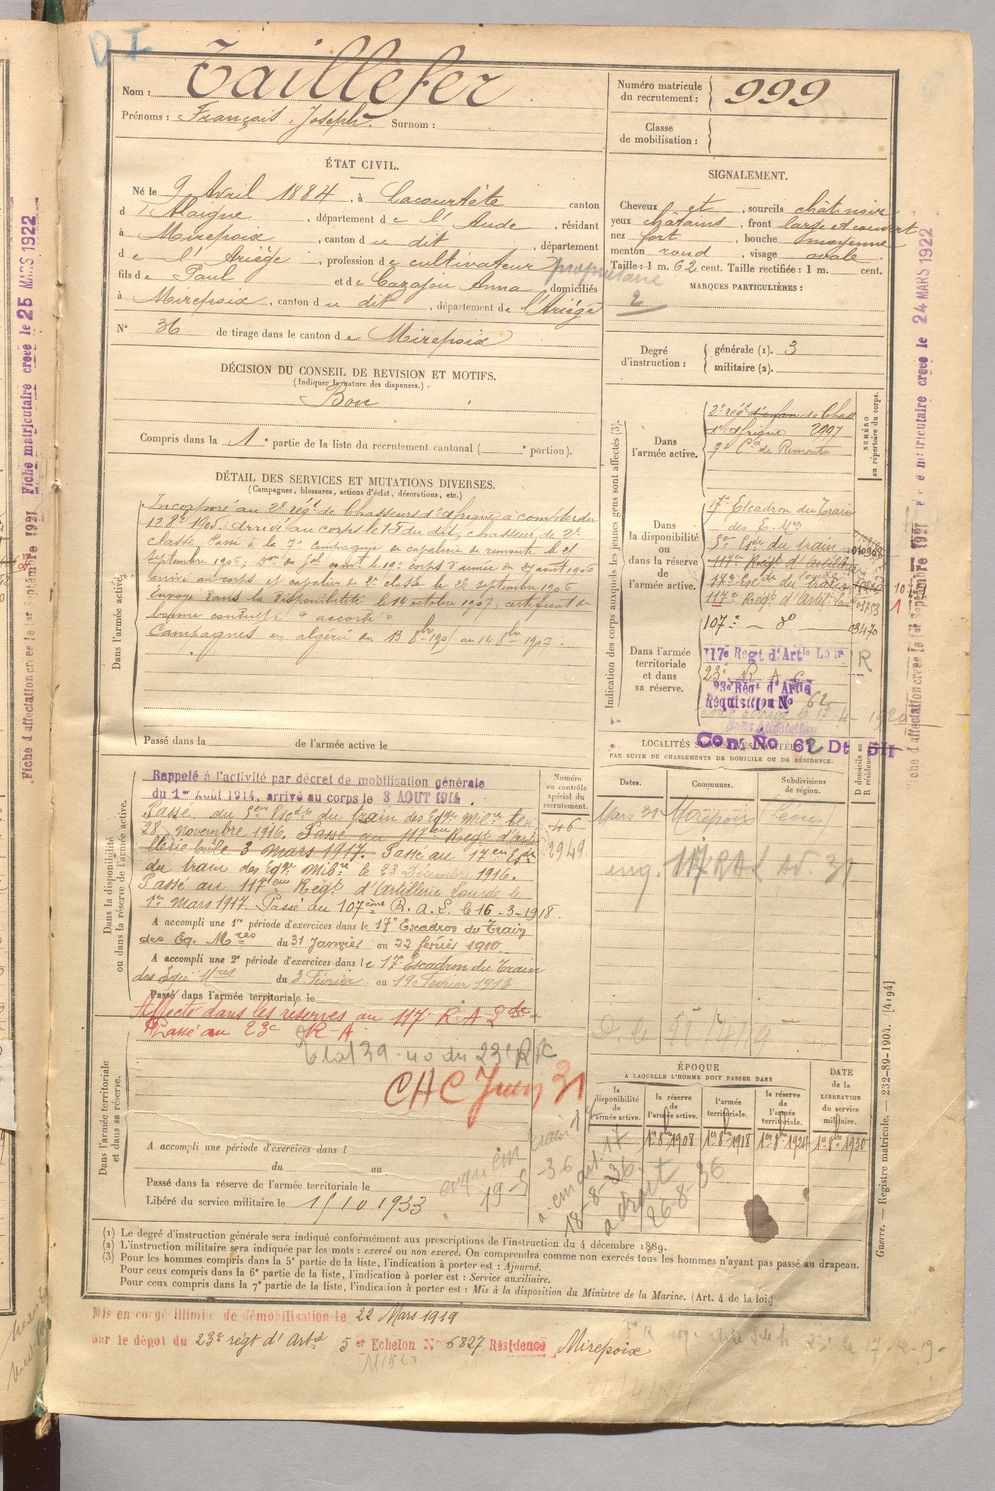 D I
Nom : Taillefer
Prénoms : François Joseph Surnom :
Numéro matricule du recrutement : 999
Classe de mobilisation :
ÉTAT CIVIL.
Né le 9 Avril 1884, à Lacourtète canton
d'Alaigne, département de l'Aude, résidant
à Mirepoix, canton du dit, département
de l'Ariège, profession de cultivateur propriétaire
fils de Paul et de Cazajou Anna, domiciliés
à Mirepoix, canton du dit, département de l'Ariège
N° 36 de tirage dans le canton de Mirepoix
SIGNALEMENT.
Cheveux et, sourcils chât noir
yeux châtains, front large et couvert
nez fort, bouche moyenne
menton rond, visage ovale
Taille : 1 m. 62 cent. Taille rectifiée : 1 m. cent.
MARQUES PARTICULIÈRES :
2
Degré d'instruction : générale (1). 3
militaire (2).
DÉCISION DU CONSEIL DE REVISION ET MOTIFS.
(Indiquer la nature des dispenses.)
Bon
Compris dans la 1e partie de la liste du recrutement cantonal ( portion).
DÉTAIL DES SERVICES ET MUTATIONS DIVERSES.
(Campagnes, blessures, actions d'éclat, décorations, etc.)
Dans l'armée active.
Incorporé au 2e régt de Chasseurs d'Afrique à compter du
12 8bre 1905. Arrivé au corps le 15 du dit, chasseur de 2e
classe. Passé à la 7e Compagnie de cavaliers de remonte le 25
septembre 1906,
arrivé au corps et cavalier de 2e classe le 26 septembre 1906
Envoyé dans la disponibilité le 14 octobre 1907; certificat de
bonne conduite "accordé"
Campagnes en algérie du 13 8bre 1905 au 14 8bre 1907.
Passé dans la de l'armée active le
Indication des corps auxquels les jeunes gens sont affectés (3).
NUMÉRO au répertoire du corps.
Dans l'armée active.
2e régt d'infan de Chass
d'Afrique 2997
7e Cie de Remonte
Dans la disponibilité ou dans la réserve de l'armée active.
17e Escadron du Train
des E. Mres
5em Esc du train
117em Regt d'Artillerie
17em Esc du train
117e Regt d'Artil Lourde 03753
107e - do 03470
Dans l'armée territoriale et dans sa réserve.
117e Regt d'Artie Lour R
23e R. A. C
23e Régt d'Artie
Réquisition No 62
Con. No 62 Dt 5-I
LOCALITÉS
PAR SUITE DE CHANGEMENTS DE DOMICILE OU DE RÉSIDENCE.
Dates. Communes. Subdivisions de région. D domicile ou R résidence.
Mars 21 Mirepoix
Dans la disponibilité ou dans la réserve de l'armée active.
Numéro au contrôle spécial du recrutement.
46
2949
Rappelé à l'activité par décret de mobilisation générale
du 1er AOUT 1914, arrivé au corps le 3 AOUT 1914
Passé du 5em Escdr du train des Eqs Milres le
28 novembre 1916. Passé au 117em Regt d'arti
llerie lourde 3 mars 1917. Passé au 17em Esdr
du train des Eqs Milres le 23 Décembre 1916.
Passé au 117ème Régt d'Artillerie Lourde le
1er mars 1917. Passé au 107ème R. A. L. le 16-3-1918.
A accompli une 1re période d'exercices dans le 17e Escadron du Train
des Eq. Mres du 31 Janvier au 22 février 1910
A accompli une 2e période d'exercices dans le 17e Escadron du Train
des Equi Mres du 3 Février au 19 Février 1913
Passé dans l'armée territoriale le
Affecté dans les réserves au 117e R.A.L
Passé au 23e R.A
39-40 du 23e RAC
CHC Juin 31
Dans l'armée territoriale et dans sa réserve.
A accompli une période d'exercices dans l
du au
Passé dans la réserve de l'armée territoriale le
Libéré du service militaire le 15 10 1933
19-5 36
18-8-36
26-8-36
ÉPOQUE
À LAQUELLE L'HOMME DOIT PASSER DANS
la disponibilité de l'armée active.
la réserve de l'armée active.
l'armée territoriale.
la réserve de l'armée territoriale.
DATE de la LIBÉRATION du service militaire.
1er 8bre 1908 1er 8bre 1918 1er 8bre 1924 1er 8bre 1930
(1) Le degré d'instruction générale sera indiqué conformément aux prescriptions de l'instruction du 4 décembre 1889.
(2) L'instruction militaire sera indiquée par les mots : exercé ou non exercé. On comprendra comme non exercés tous les hommes n'ayant pas passé au drapeau.
(3) Pour les hommes compris dans la 5e partie de la liste, l'indication à porter est : Ajourné.
Pour ceux compris dans la 6e partie de la liste, l'indication à porter est : Service auxiliaire.
Pour ceux compris dans la 7e partie de la liste, l'indication à porter est : Mis à la disposition du Ministre de la Marine. (Art. 4 de la loi.)
Mis en congé illimité de démobilisation le 22 Mars 1919
par le dépôt du 23e régt d'Arte 5e Echelon N° 5827 Résidence Mirepoix
Guerre. — Registre matricule. — 232-89-1904. [4194]
Fiche matriculaire créée le 25 MARS 1922
Fiche d'affectation créée le 1er Septembre 1921
matriculaire créée le 24 MARS 1922
d'affectation créée le 1er Septembre 1921